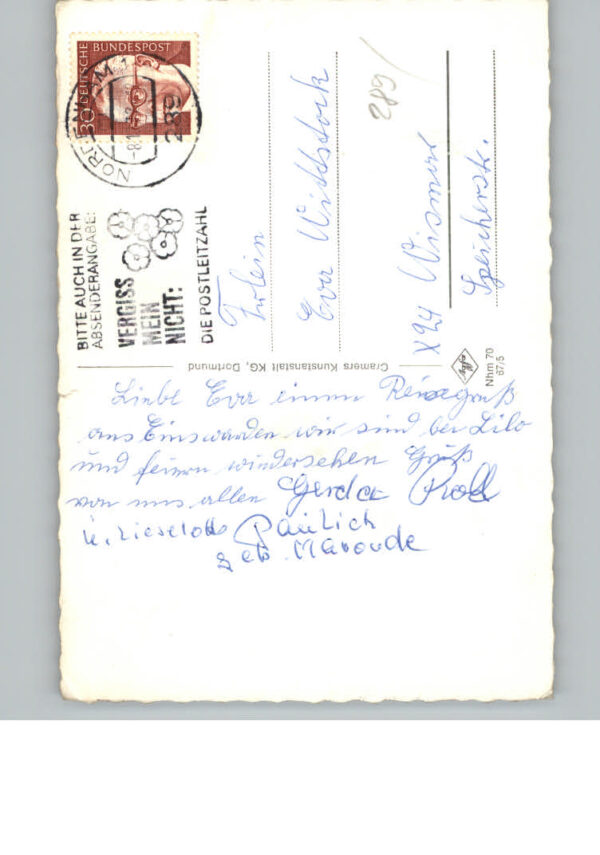 30 DEUTSCHE BUNDESPOST
289
BITTE AUCH IN DER
ABSENDERANGABE:
VERGISS
MEIN
NICHT:
DIE POSTLEITZAHL
289/
Frlein
Eva Wittstock
X24 Wismar
Speicherstr.
Cramers Kunstanstalt KG, Dortmund
Agfa
Nhm 70
67/5
Liebe Eva einen
aus Einswarden wir sind bei Lilo
und feiern wiedersehen Grüß
von uns allen Gerda
u. Lieselotte Paulich
geb. Maroude